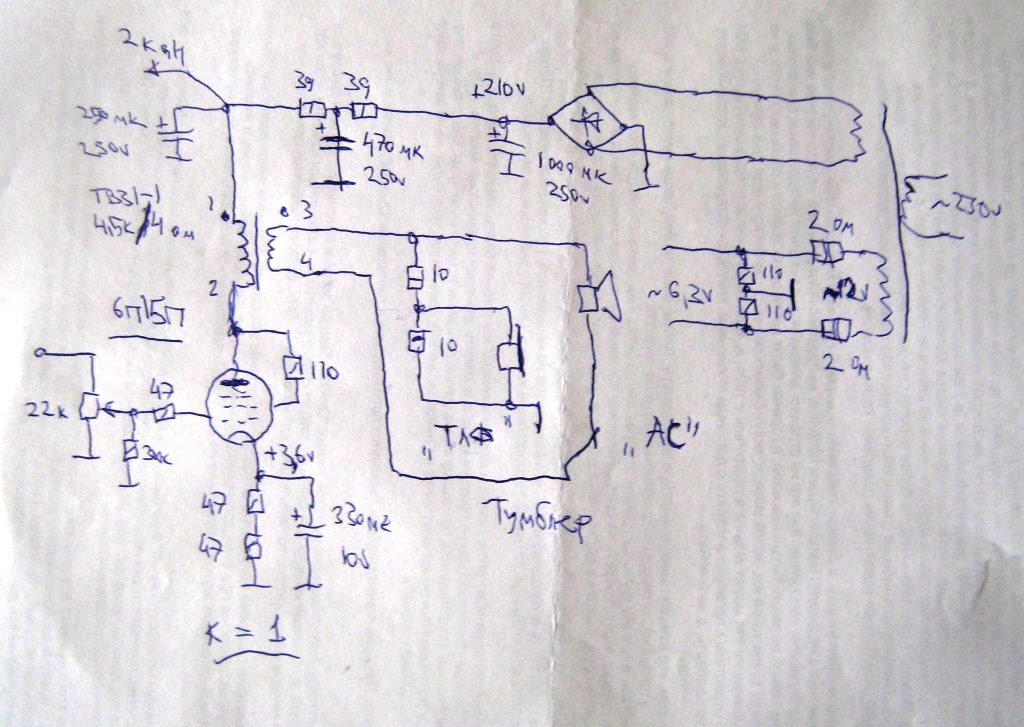 2 кан
39
39
+210v
250 мк
250v
+
+
470 мк
250v
+
1000 мк
250v
ТВЗ1-1
4,5к/4 ом
1
3
4
2
~230v
2 ом
110
110
~6,3v
~12v
2 ом
6П15П
10
10
110
22к
47
"ТЛФ"
"АС"
+3,6v
47
47
+
330мк
10v
Тумблер
К = 1